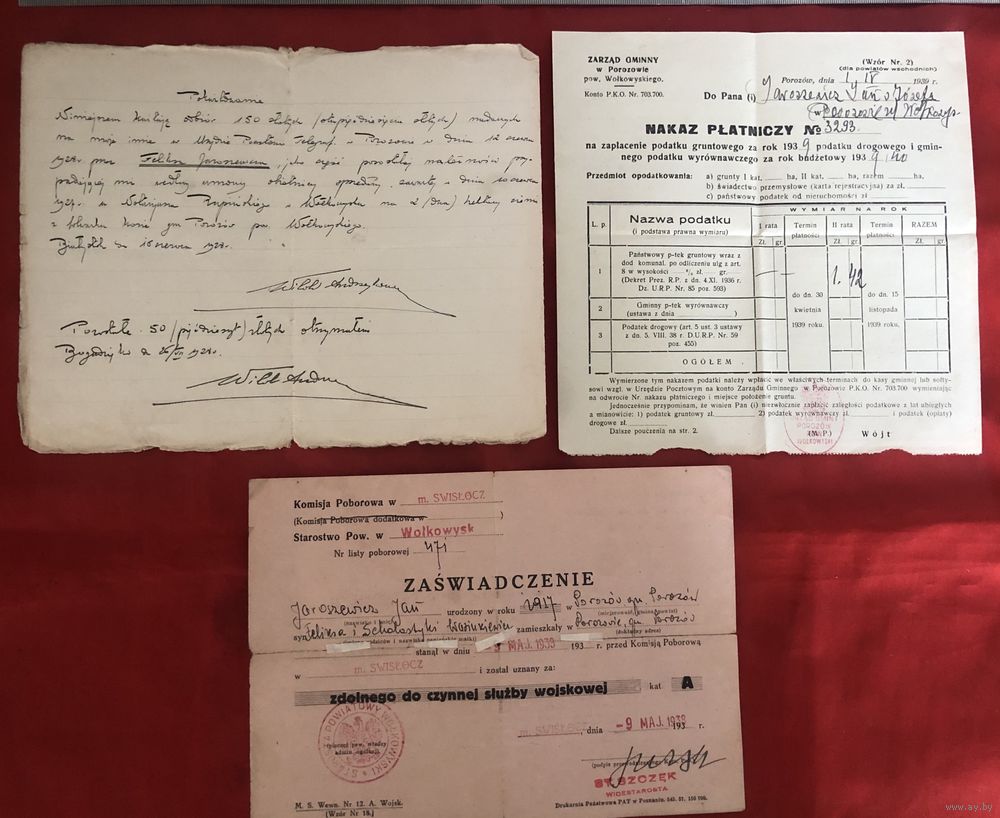 Pokwitowanie
Niniejszem kwituję odbiór 150 złotych (sto pięćdziesięciu złotych) nadanych
na moje imię w Urzędzie Poczt. Telegraf. w Porozowie w dniu 12 czerwca
1928r. przez Feliksa Jaroszewicza, jako część pozostałej należności przy-
padającej mi według umowy
192 r. u Notarjusza w Wołkowysku na 2 (dwa) hektary ziemi
z folwarku gm Porozów pow. Wołkowyskiego.
Białystok dn 16 czerwca 1928r.
Pozostałe 50 /pięćdziesiąt/ złotych otrzymałem
dn 26/VII 1928r.
ZARZĄD GMINNY
w Porozowie
pow. Wołkowyskiego.
Konto P.K.O. Nr. 703.700.
(Wzór Nr. 2)
(dla powiatów wschodnich)
Porozów, dnia 1 IV 1939 r.
Do Pana (i) Jaroszewicz Jan s. Józefa
w Porozowie
NAKAZ PŁATNICZY № 3293
na zapłacenie podatku gruntowego za rok 1939 podatku drogowego i gmin-
nego podatku wyrównawczego za rok budżetowy 1939/40
Przedmiot opodatkowania: a) grunty I kat. ha, II kat. ha, razem ha,
b) świadectwo przemysłowe (karta rejestracyjna) za zł.
c) państwowy podatek od nieruchomości zł
L. p. Nazwa podatku
(i podstawa prawna wymiaru)
WYMIAR NA ROK
I rata Termin płatności II rata Termin płatności RAZEM
Zł. gr Zł. gr Zł. gr
1 Państwowy p-tek gruntowy wraz z
dod komunal. po odliczeniu ulg z art.
8 w wysokości — % zł. — gr.
(Dekret Prez. R.P. z dn. 4.XI. 1936 r.
Dz. U.R.P. Nr. 85 poz. 593)
— — 1. 42
2 Gminny p-tek wyrównawczy
(ustawa z dnia )
do dn. 30 kwietnia 1939 roku.
do dn. 15 listopada 1939 roku.
3 Podatek drogowy (art. 5 ust. 3 ustawy
z dn. 5. VIII. 38 r. D.U.R.P. Nr. 59
poz. 455)
OGÓŁEM .
Wymierzone tym nakazem podatki należy wpłacić we właściwych terminach do kasy gminnej lub sołty-
sowi wzgl. w Urzędzie Pocztowym na konto Zarządu Gminnego w Porozowie P.K.O. Nr. 703.700 wymieniając
na odwrocie Nr. nakazu płatniczego i miejsce położenie gruntu.
Jednocześnie przypominam, że winien Pan (i) niezwłocznie zapłacić zaległości podatkowe z lat ubiegłych
a mianowicie: 1) podatek gruntowy zł. 2) podatek wyrównawczy zł. i podatek (opłaty)
drogowe zł.
Dalsze pouczenia na str. 2.
(M.P.) Wójt
POROZÓW
WOŁKOWYSKI
Komisja Poborowa w m. SWISŁOCZ
(Komisja Poborowa dodatkowa w )
Starostwo Pow. w Wołkowysk
Nr listy poborowej 471
ZAŚWIADCZENIE
Jaroszewicz Jan urodzony w roku 1917 w Porozów gm. Porozów
(nazwisko i imię) (miejscowość, gmina, powiat)
syn Feliksa i Scholastyki zamieszkały w Porozowie, gm. Porozów
(imiona rodziców i nazwisko panieńskie matki) (dokładny adres)
stanął w dniu 9 MAJ. 1939 193 r. przed Komisją Poborową
w m. SWISŁOCZ i został uznany za:
zdolnego do czynnej służby wojskowej kat A
m. SWISŁOCZ, dnia -9 MAJ. 1939 193 r.
STAROSTA POWIATOWY WOŁKOWYSKI
(pieczęć pow. władzy
admin. ogólnej)
ST. SZCZĘK
WICESTAROSTA
M. S. Wewn. Nr 12. A. Wojsk.
(Wzór Nr 18.)
Drukarnia Państwowa PAT w Poznaniu.
www.ay.by